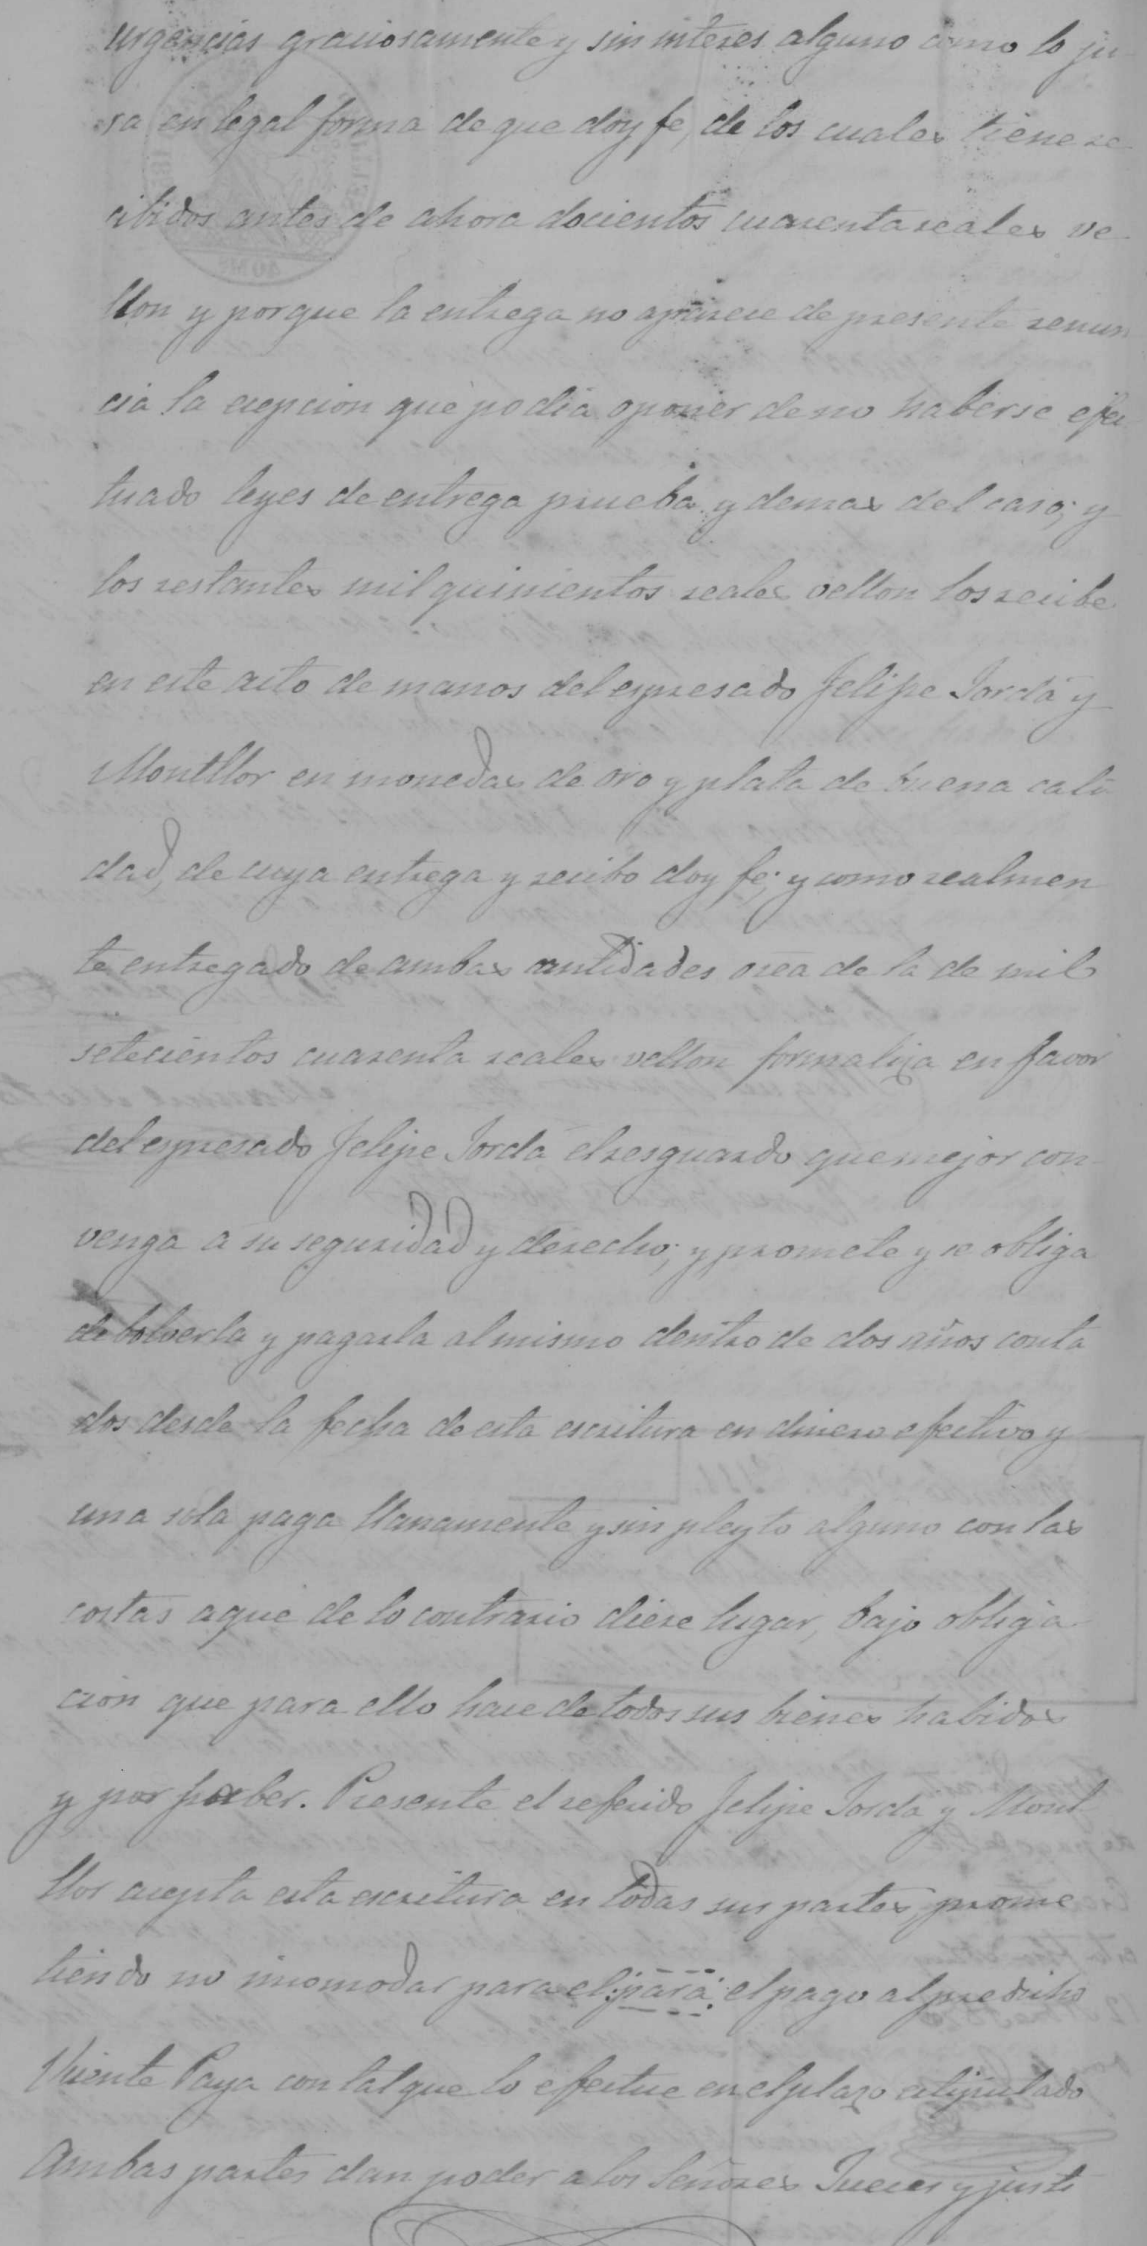 urgencias graciosamente y sin interes alguno como lo ju
ra en legal forma de que doy fe, de los cuales tiene re
cibidos antes de ahora docientos cuarenta reales ve
llon y porque la entrega no aparece de presente renun
cia la cepcion que podia oponer de no haberse efec
tuado leyes de entrega prueba y demas del caso; y
los restantes mil quinientos reales vellon los recibe
en este acto de manos del espresado Felipe Jordá y
Montllor en monedas de oro y plata de buena cali
dad, de cuya entrega y recibo doy fe; y como realmen
te entregado de ambas cantidades osea de la de mil
setecientos cuarenta reales vellon formaliza en favor
del espresado Felipe Jordá el resguardo que mejor con
venga a su seguridad y derecho; y promete y se obliga
debolverla y pagarla al mismo dentro de dos años conta
dos desde la fecha de esta escritura en dinero efectivo y
una sola paga llanamente y sin pleyto alguno con las
costas a que de lo contrario diere lugar, bajo obliga
cion que para ello hace de todos sus bienes habidos
y por haber. Presente el referido Felipe Jorda y Mont
llor acepta esta escritura en todas sus partes, prome
tiendo no incomodar para el para el pago al predicho
Vicente Paya con tal que lo efectue en el plazo estipulado
Ambas partes dan poder a los Señores Jueces y justi